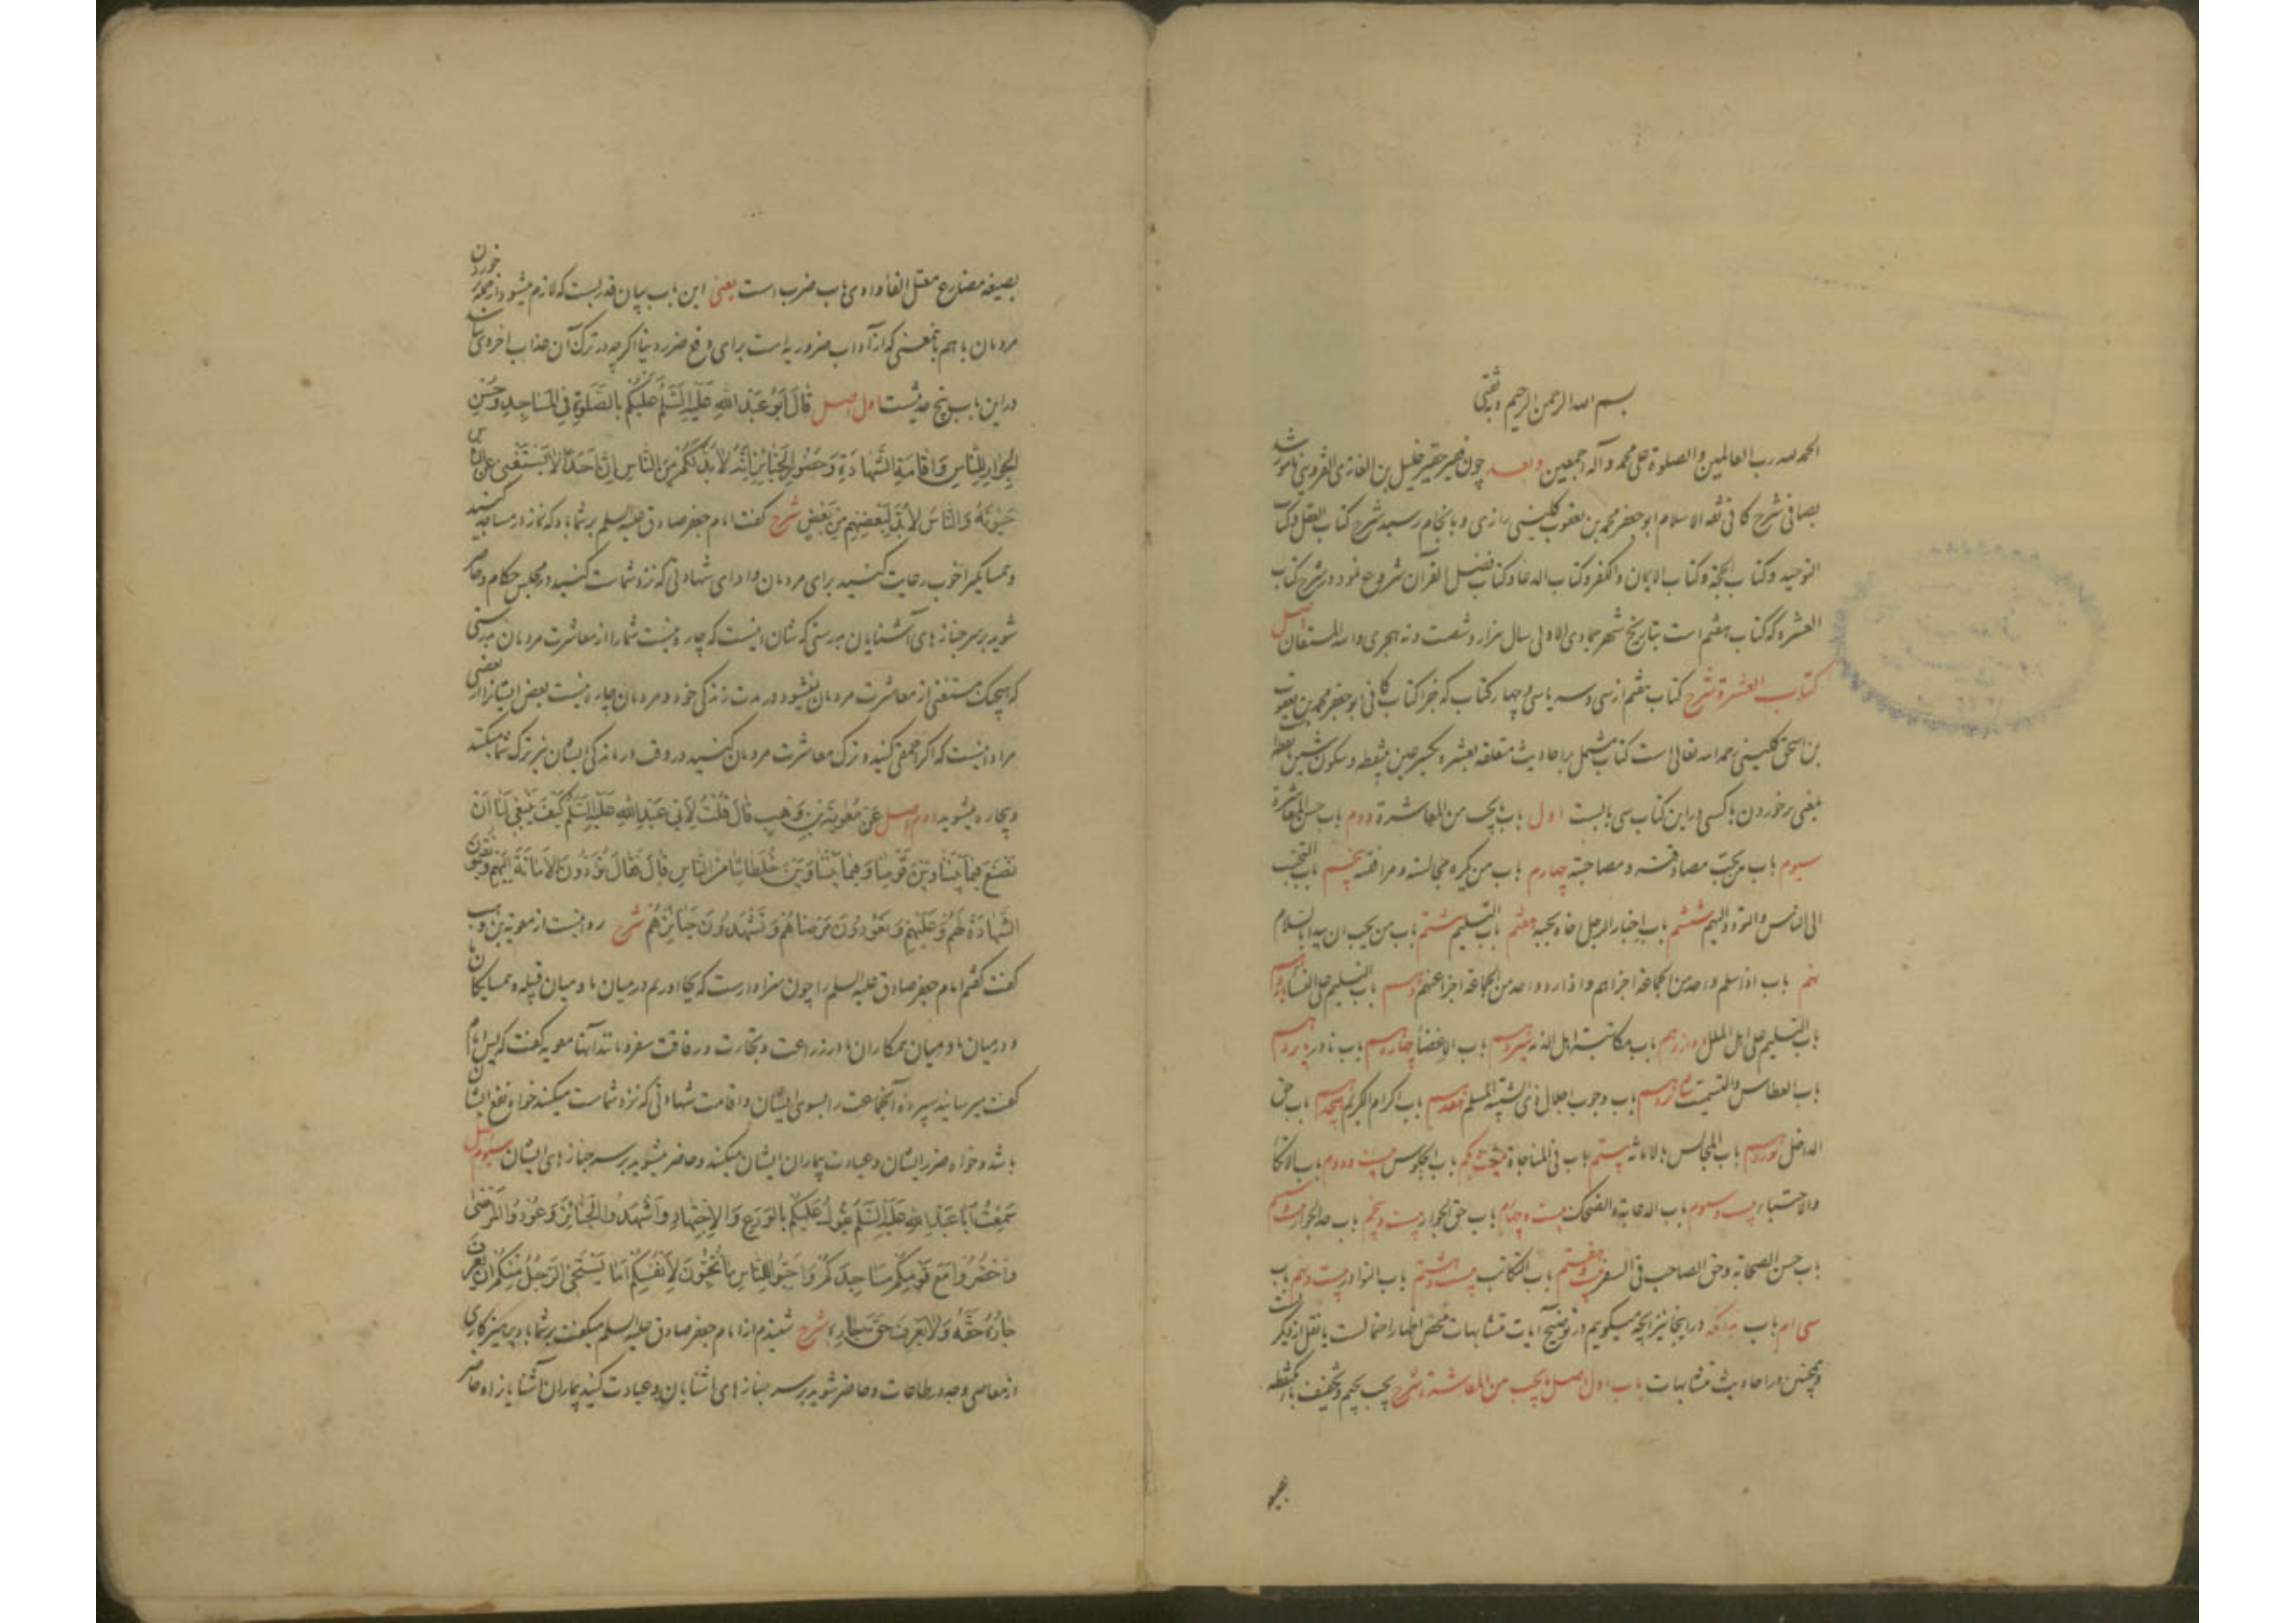 بسم الله الرحمن الرحیم و به ثقتی
الحمد لله رب العالمین و الصلوة علی محمد و آله اجمعین و بعد چون فقیر حقیر خلیل بن الغازی القزوینی مامور شد
بصافی شرح کافی ثقة الاسلام ابو جعفر محمد بن یعقوب کلینی رازی و بانجام رسید شرح کتاب العقل و کتاب
التوحید و کتاب الحجة و کتاب الایمان و الکفر و کتاب الدعا و کتاب فضل القرآن شروع نمود در شرح کتاب
العشرة که کتاب هفتم است بتاریخ شهر جمادی الاولی سال هزار و شصت و نه هجری و الله المستعان اصل
کتاب العشرة شرح کتاب هفتم از سی و سه یا سی و چهار کتاب که جزا کتاب کافی ابو جعفر محمد بن یعقوب
بن اسحق کلینی رحمه الله تعالی است کتاب مشتمل بر احادیث متعلقه بعشره بکسر عین بی نقطه و سکون شین با نقطه
بمعنی برخوردن با کسی و در این کتاب سی بابست اول باب ما یجب من المعاشرة دوم باب حسن المعاشرة
سیوم باب من یجب مصادقته و مصاحبته چهارم باب من یکره مجالسته و مرافقته پنجم باب التحبب
الی الناس و التودد الیهم ششم باب اخبار الرجل اخاه بحبه هفتم باب التسلیم هشتم باب من یجب ان یبدأ بالسلام
نهم باب اذا سلم واحد من الجماعة اجزاهم و اذا رد واحد من الجماعة اجزا عنهم دهم باب التسلیم علی النساء یازدهم
باب التسلیم علی اهل الملل دوازدهم باب مکاتبة اهل الذمه سیزدهم باب الاغضا چهاردهم باب نادر پانزدهم
باب العطاس و التسمیت شانزدهم باب وجوب اجلال ذی الشیبة المسلم هفدهم باب اکرام الکریم هیجدهم باب حق
الداخل نوزدهم باب المجالس بالامانة بیستم باب فی المناجاة بیست و یکم باب الجلوس بیست و دوم باب الاتکا
و الاحتباء بیست و سیوم باب الدعابة و الضحک بیست و چهارم باب حق الجوار بیست و پنجم باب حد الجوار بیست و ششم
باب حسن الصحابة و حق الصاحب فی السفر بیست و هفتم باب التکاتب بیست و هشتم باب النوادر بیست و نهم باب
سی ام باب در اینجا نیز آنچه میگویم در توضیح آیات متشابهات محض اظهار احتمالست یا نقل از دیگر
و همچنین در احادیث متشابهات باب اول اصل ما یجب من المعاشرة شرح یجب بجیم و تخفیف باء یکنقطه
بصیغه مضارع معتل الفاء واوی باب ضرب است یعنی این باب بیان قدریست که لازم میشود از جمله خوردن
مردمان با هم بمعنی که از آداب ضروریه است برای دفع ضرر دنیا اگرچه در ترک آن عذاب اخروی نباشد
در این باب پنج حدیثست اول اصل قَالَ أَبُو عَبْدِ اللَّهِ عَلَيْهِ السَّلَمُ عَلَيْكُمْ بِالصَّلَوةِ فِي الْمَسَاجِدِ وَحُسْنِ
الْجِوَارِ لِلنَّاسِ وَاِقَامَةِ الشَّهَادَةِ وَحُضُورِ الْجَنَائِزِ اِنَّهُ لَا بُدَّ لَكُمْ مِنَ النَّاسِ اِنَّ اَحَدًا لَا يَسْتَغْنِي عَنِ النَّاسِ
حَيٰوتَهُ وَالنَّاسُ لَابُدَّ لِبَعْضِهِمْ مِنْ بَعْضٍ شرح گفت امام جعفر صادق علیه السلم بر شما باد که نماز در مساجد کنید
و همسایگی را خوب رعایت کنید برای مردمان و ادای شهادتی که نزد شماست کنید در مجلس حکام و حاضر
شوید بر سر جنازه های آشنایان بدرستی که شان اینست که چاره نیست شما را از معاشرت مردمان بدرستی
که هیچیک مستغنی از معاشرت مردمان نمیشود در مدت زندگی خود و مردمان چاره نیست بعض ایشانرا از بعضی
مراد اینست که اگر حمقی کنید و ترک معاشرت مردمان کنید در وقت درماندگی ایشان نیز ترک شما میکنند
و بیچاره میشوید دوم اصل عَنْ مُعٰوِيَةَ بْنِ وَهَبٍ قَالَ قُلْتُ لِاَبِي عَبْدِ اللهِ عَلَيْهِ السَّلَمُ كَيْفَ يَنْبَغِي لَنَا اَنْ
نَصْنَعَ فِيمَا بَيْنَنَا وَبَيْنَ قَوْمِنَا وَفِيمَا بَيْنَنَا وَبَيْنَ خُلَطَائِنَا مِنَ النَّاسِ قَالَ فَقَالَ تُؤَدُّونَ الْاَمَانَةَ اِلَيْهِمْ وَتُقِيمُونَ
الشَّهَادَةَ لَهُمْ وَعَلَيْهِمْ وَتَعُودُونَ مَرْضَاهُمْ وَتَشْهَدُونَ جَنَائِزَهُمْ شرح روایتست از معویة بن وهب
گفت گفتم امام جعفر صادق علیه السلم را چون سزاوارست که بجا آوریم در میان ما و میان قبیله و همسایگان ما
و در میان ما و میان همکاران ما در زراعت و تجارت و رفاقت سفر و مانند آنها معویه گفت که پس امام
گفت میرسانید سپرده آنجماعت را بسوی ایشان و اقامت شهادتی که نزد شماست میکنید خواه نفع ایشان
باشد و خواه ضرر ایشان و عیادت بیماران ایشان میکنید و حاضر میشوید بر سر جنازه های ایشان سیوم اصل
سَمِعْتُ اَبَا عَبْدِ اللهِ عَلَيْهِ السَّلَمُ يَقُولُ عَلَيْكُمْ بِالْوَرَعِ وَالْاِجْتِهَادِ وَاشْهَدُوا الْجَنَائِزَ وَعُودُوا الْمَرْضٰى
وَاحْضُرُوا مَعَ قَوْمِكُمْ مَسَاجِدَكُمْ وَاَحِبُّوا لِلنَّاسِ مَا تُحِبُّونَ لِاَنْفُسِكُمْ اَمَا يَسْتَحْيِي الرَّجُلُ مِنْكُمْ اَنْ يَعْرِفَ
جَارُهُ حَقَّهُ وَلَا يَعْرِفَ حَقَّ جَارِهِ شرح شنیدم از امام جعفر صادق علیه السلم میگفت بر شما باد پرهیزکاری
از معاصی و جد در طاعات و حاضر شوید بر سر جنازه های آشنایان و عیادت کنید بیماران آشنایانرا و حاضر